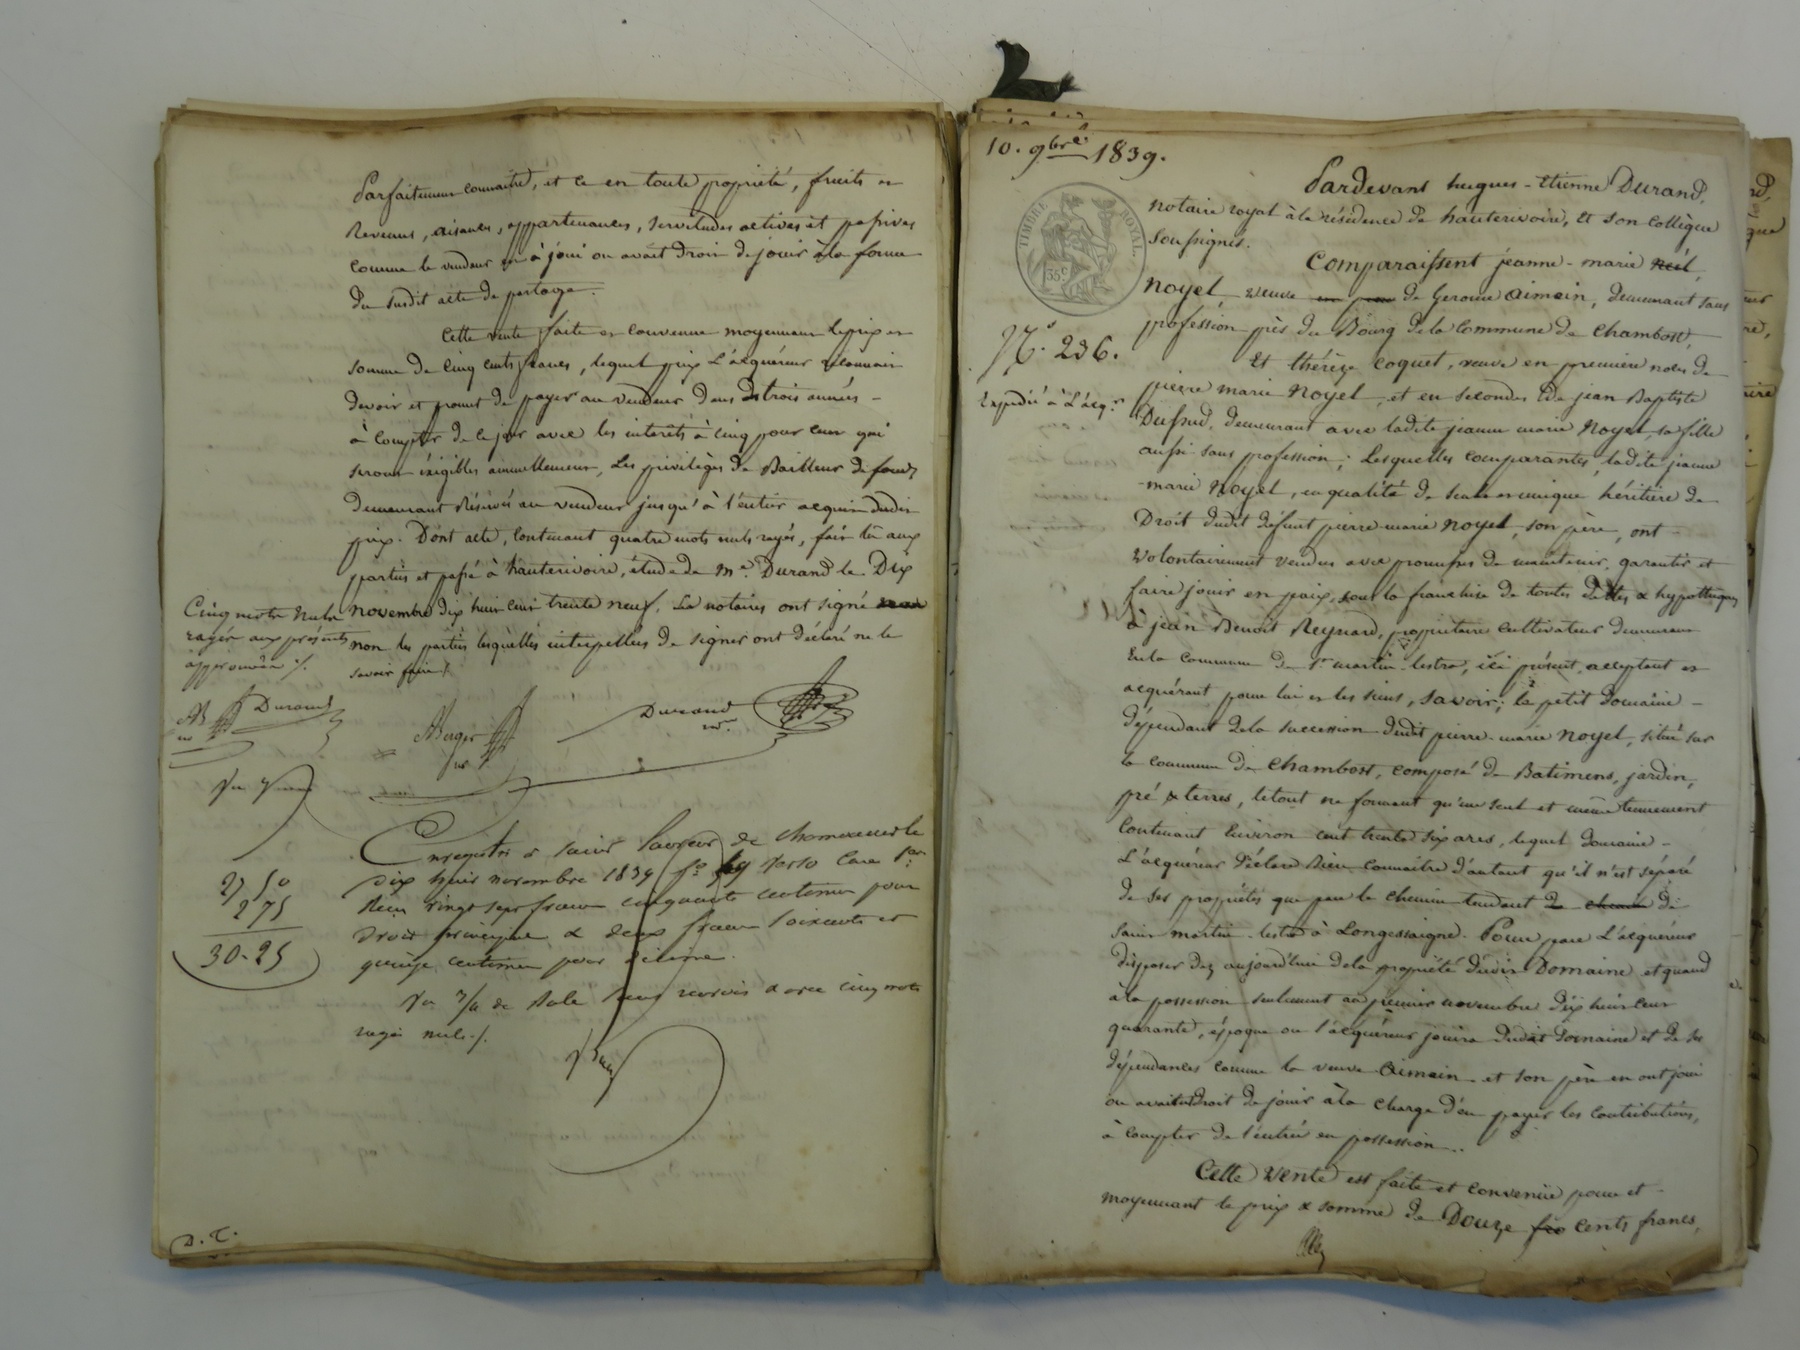 Parfaitement connaitre, et ce en toute propriété, fruits et
Revenus, aisances, appartenances, servitudes actives et passives
comme le vendeur en à joui ou avait droit de jouir à la forme
du susdit acte de partage.
Cette vente faite et convenue moyennant le prix et
somme de cinq cents francs, lequel prix L'acquéreur reconnait
devoir et promet de payer au vendeur dans trois années
à compter de ce jour avec les intérêts à cinq pour cent qui
seront éxigibles annuellement, Les privilèges de Bailleur de fonds
demeurant Réservés au vendeur jusqu'à l'entier acquis dudit
prix. Dont acte, contenant quatre mots nuls rayés, fait lu aux
parties et passé à hauterivoire, étude de Me. Durand le Dix
novembre dix huit cent trente neuf. Les notaires ont signé
non les parties lesquelles interpellées de signer ont déclaré ne le
savoir faire /.
Cinq mots nuls
rayés aux présentes
approuvés /.
Durand
Durand
Enregistré à Saint Laurent de chamousset le
Dix huit novembre 1839 fo 69 verso Case 1re
Reçu vingt sept francs cinquante centimes pour
Droit principal & deux francs soixante et
quinze centimes pour décime.
27 50
2 75
30-25
rayés nuls /.
D. T.
10. 9bre 1839.
TIMBRE ROYAL
35c
No. 236.
Expedié à L'acqr
Pardevant hugues-Etienne Durand,
notaire royal à la résidence de hauterivoire, Et son Collègue
soussignés.
Comparaissent jeanne-marie
Noyel, veuve de Gerome Aimein, demeurant sans
profession près du Bourg de la Commune de Chambost,
Et thérèze Coquet, veuve en première noces de
pierre marie Noyel, et en secondes de jean Baptiste
Dufud, demeurant avec ladite jeanne marie Noyel, sa fille
aussi sans profession; Lesquelles comparantes, ladite jeanne
-marie Noyel, en qualité de seule et unique héritière de
Droit dudit défunt pierre-marie Noyel, son père, ont
volontairement vendu avec promesses de maintenir, garantir et
faire jouir en paix, sous la franchise de toutes dettes & hypothèques
à jean Benoit Reynard, propriétaire cultivateur demeurant
en la commune de St martin-lestra, ici présent acceptant et
acquérant pour lui et les siens, savoir; le petit domaine
dépendant de la succession dudit pierre-marie Noyel, situé sur
la commune de Chambost, composé de Batimens, jardin,
pré & terres, le tout ne formant qu'un seul et même tennement
Contenant Environ cent trente six ares, lequel Domaine
L'acquéreur déclare Bien connaitre d'autant qu'il n'est séparé
de ses propriétés que par le chemin tendant de
Saint martin-lestra à Longessaigne. Pour par L'acquéreur
disposer dez aujourd'hui de la propriété dudit Domaine et quand
à la possession seulement au premier novembre dix huit cent
quarante, époque ou l'acquéreur jouira dudit Domaine et de ses
dépendances comme la veuve Aimein et son père en ont joui
ou avaient Droit de jouir à la charge d'en payer les contributions,
à compter de l'entrée en possession.
Cette vente est faite et convenüe pour et
moyennant le prix & somme de Douze cents francs,